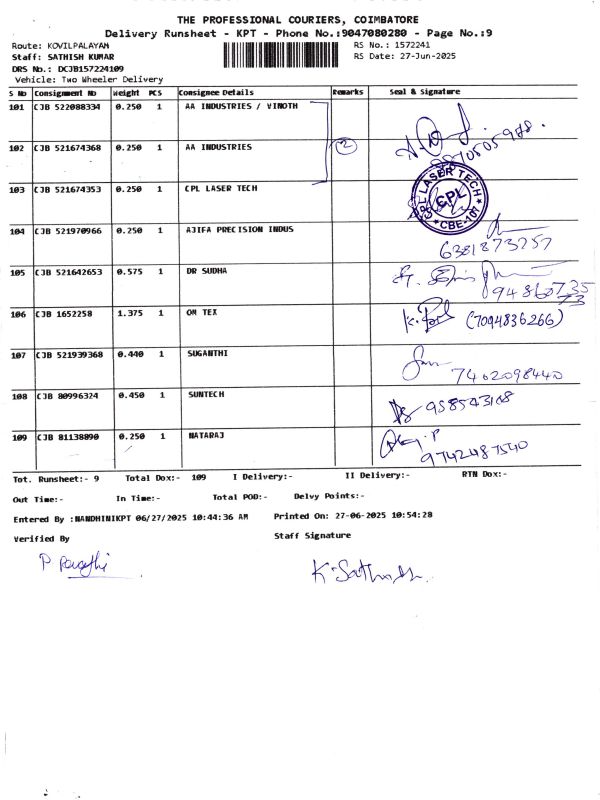 THE PROFESSIONAL COURIERS, COIMBATORE
Delivery Runsheet - KPT - Phone No.:9047080280 - Page No.:9
Route: KOVILPALAYAM RS No.: 1572241
Staff: SATHISH KUMAR RS Date: 27-Jun-2025
DRS No.: DCJB157224109
Vehicle: Two Wheeler Delivery
S No Consignment No Weight PCS Consignee Details Remarks Seal & Signature
101 CJB 522088334 0.250 1 AA INDUSTRIES / VINOTH
102 CJB 521674368 0.250 1 AA INDUSTRIES 2
103 CJB 521674353 0.250 1 CPL LASER TECH CPL LASER TECH CPL CBE-107
104 CJB 521970966 0.250 1 AJIFA PRECISION INDUS 6381873257
105 CJB 521642653 0.575 1 DR SUDHA
106 CJB 1652258 1.375 1 OM TEX (7094836266)
107 CJB 521939368 0.440 1 SUGANTHI 7402098440
108 CJB 80996324 0.450 1 SUNTECH
109 CJB 81138890 0.250 1 NATARAJ 9742487540
Tot. Runsheet:- 9 Total Dox:- 109 I Delivery:- II Delivery:- RTN Dox:-
Out Time:- In Time:- Total POD:- Delvy Points:-
Entered By :NANDHINIKPT 06/27/2025 10:44:36 AM Printed On: 27-06-2025 10:54:28
Verified By Staff Signature
K. Sathish